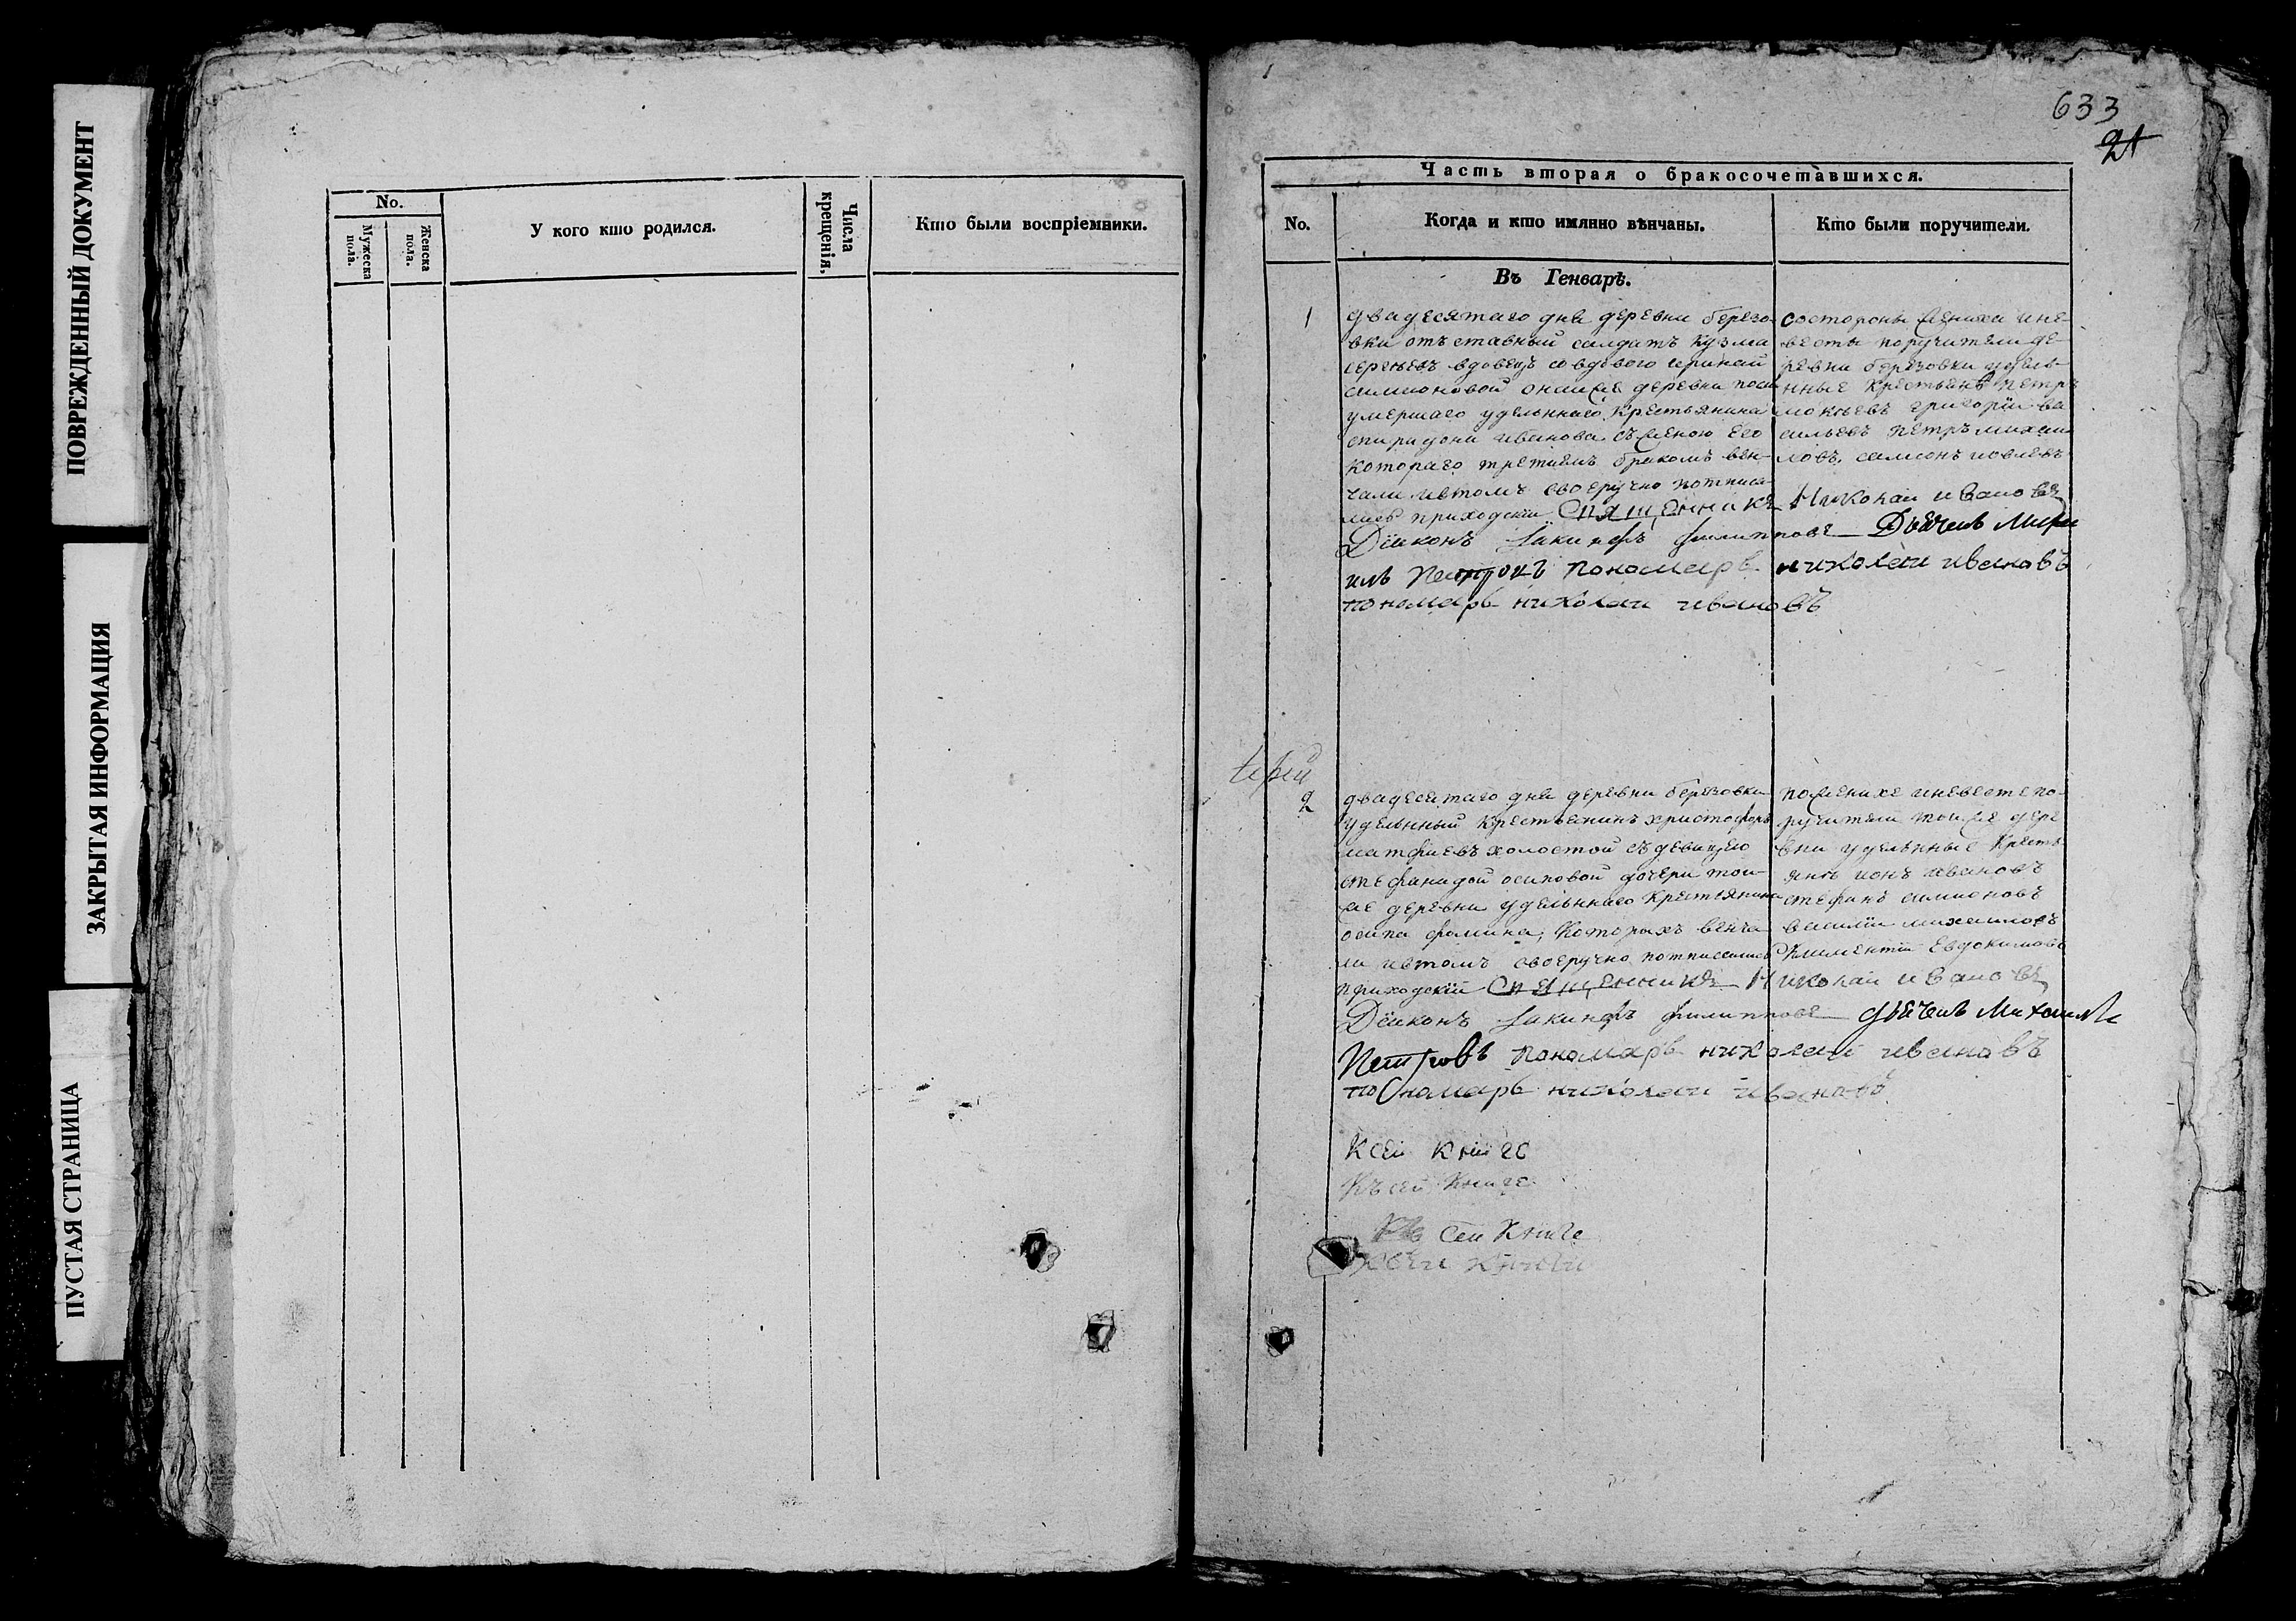 ПОВРЕЖДЕННЫЙ ДОКУМЕНТ
ЗАКРЫТАЯ ИНФОРМАЦИЯ
ПУСТАЯ СТРАНИЦА
No.
Мужеска пола.
Женска пола.
У кого кто родился.
Числа крещенія.
Кто были воспріемники.
633
21
Часть вторая о бракосочетавшихся.
No.
Когда и кто имянно вѣнчаны.
Кто были поручители.
Въ Генварѣ.
1
двадесятаго дня деревни березо-
вки отъставный салдатъ кузма
сергеевъ вдовецъ совдовою
симионовой деревни
умершаго удельннаго крестьянина
спиридона иванова съ женою его
котораго третиемъ бракомъ вен-
чали ивтомъ своеручно потписа-
лись приходскїй Священникъ Николаи ивановъ
Дїяконъ филипповъ Дьячекъ
Петровъ пономарь николаи ивановъ
пономарь николаи ивановъ
состороны жениха ине-
весты поручители де-
ревни березовки удель-
нные крестьяне петръ
григорїи ва
сильевъ петръ михаи
ловъ.
2
двадесятаго дня деревни березовки
удельнный крестьянинъ христофоръ
матфиевъ холостой съ девицею
стефанидой осиповой дочери той-
же деревни удельннаго крестьянина
осипа фомина, которыхъ венча
ли ивтомъ своеручно потписались
приходскїй Священникъ Николаи ивановъ
Дїяконъ филипповъ дьячекъ Михаилъ
Петровъ пономарь николаи ивановъ
пономарь николаи ивановъ
пожениху иневесте по-
ручители тоиже дере
вни удельнные кресть
яне ивановъ
стефанъ симионовъ
василїи михаиловъ
климентїи Евдокимовъ
Ксеи книге
Къ сей книге
Къ сеи книге